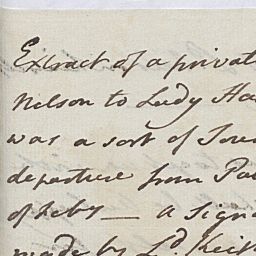 Extract of a privat
Nelson to Lady Ha
was a sort of
departure from Pa
of Feby — a sign
made by Ld. Keit